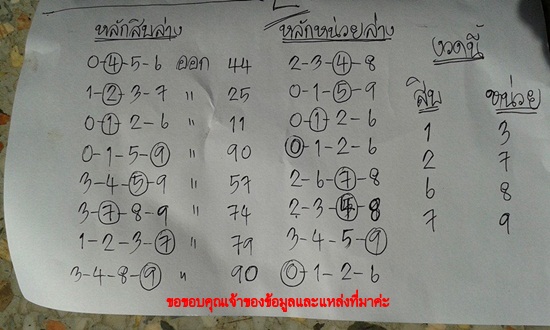 หลักสิบล่าง หลักหน่วยล่าง งวดนี้
0-4-5-6 ออก 44 2-3-4-8
1-2-3-7 " 25 0-1-5-9 สิบ หน่วย
0-1-2-6 " 11 0-1-2-6 1 3
0-1-5-9 " 90 0-1-2-6 2 7
3-4-5-9 " 57 2-6-7-8 6 8
3-7-8-9 " 74 2-3-4-8 7 9
1-2-3-7 " 79 3-4-5-9
3-4-8-9 " 90 0-1-2-6
ขอขอบคุณเจ้าของข้อมูลและแหล่งที่มาค่ะ